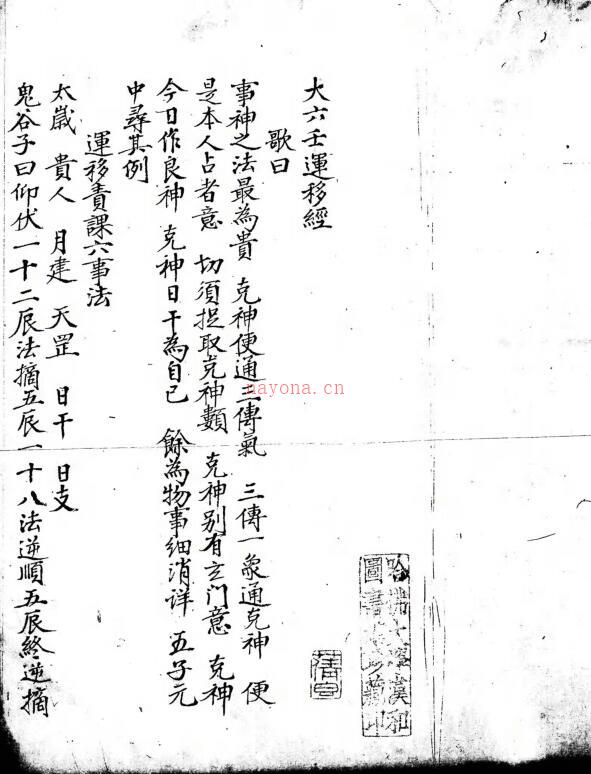 大六壬運移經
歌曰
事神之法最為貴 克神便通三傳氣 三傳一象通克神 便
是本人占者意 切須捉取克神類 克神别有玄门意 克神
今日作良神 克神日干為自己 餘為物事細消详 五子元
中尋其例
運移責課六事法
太歲 貴人 月建 天罡 日干 日支
鬼谷子曰仰伏一十二辰法摘五辰一十八法逆順五辰終逆摘
哈佛大學漢和
圖書館珍藏印
nayona.cn